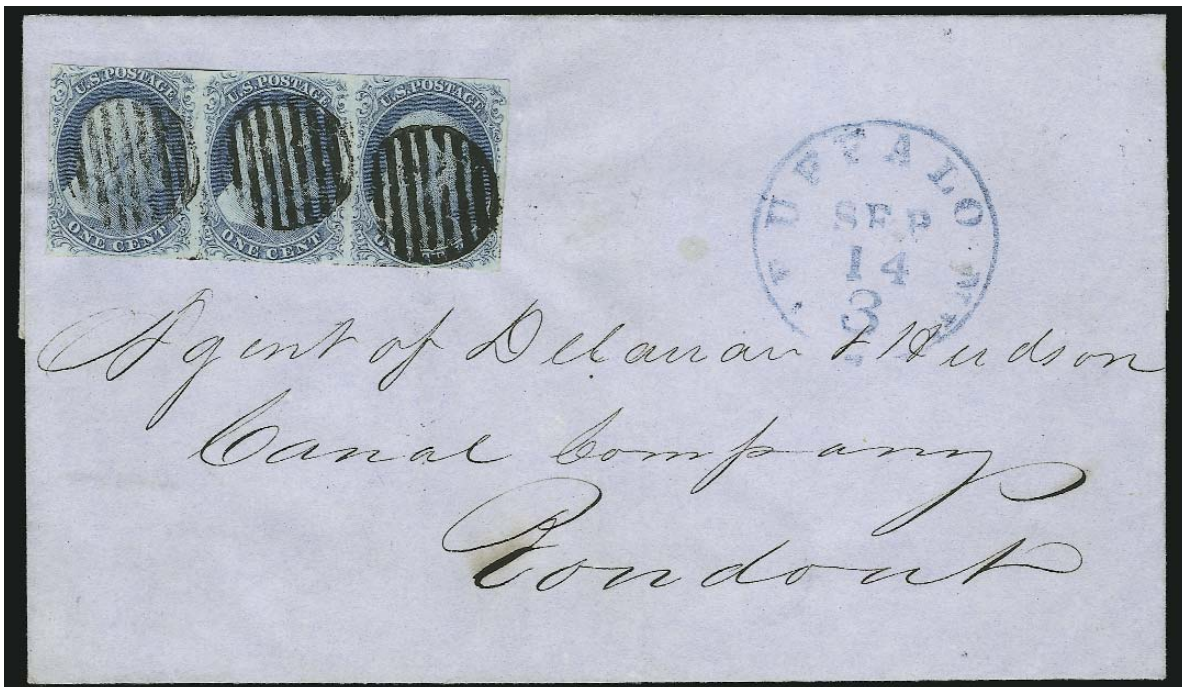 U.S. POSTAGE U.S. POSTAGE U.S. POSTAGE
ONE CENT ONE CENT
BUFFALO N.Y.
SEP
14
3
Agent of Delawar & Hudson
Canal Company
Rondout